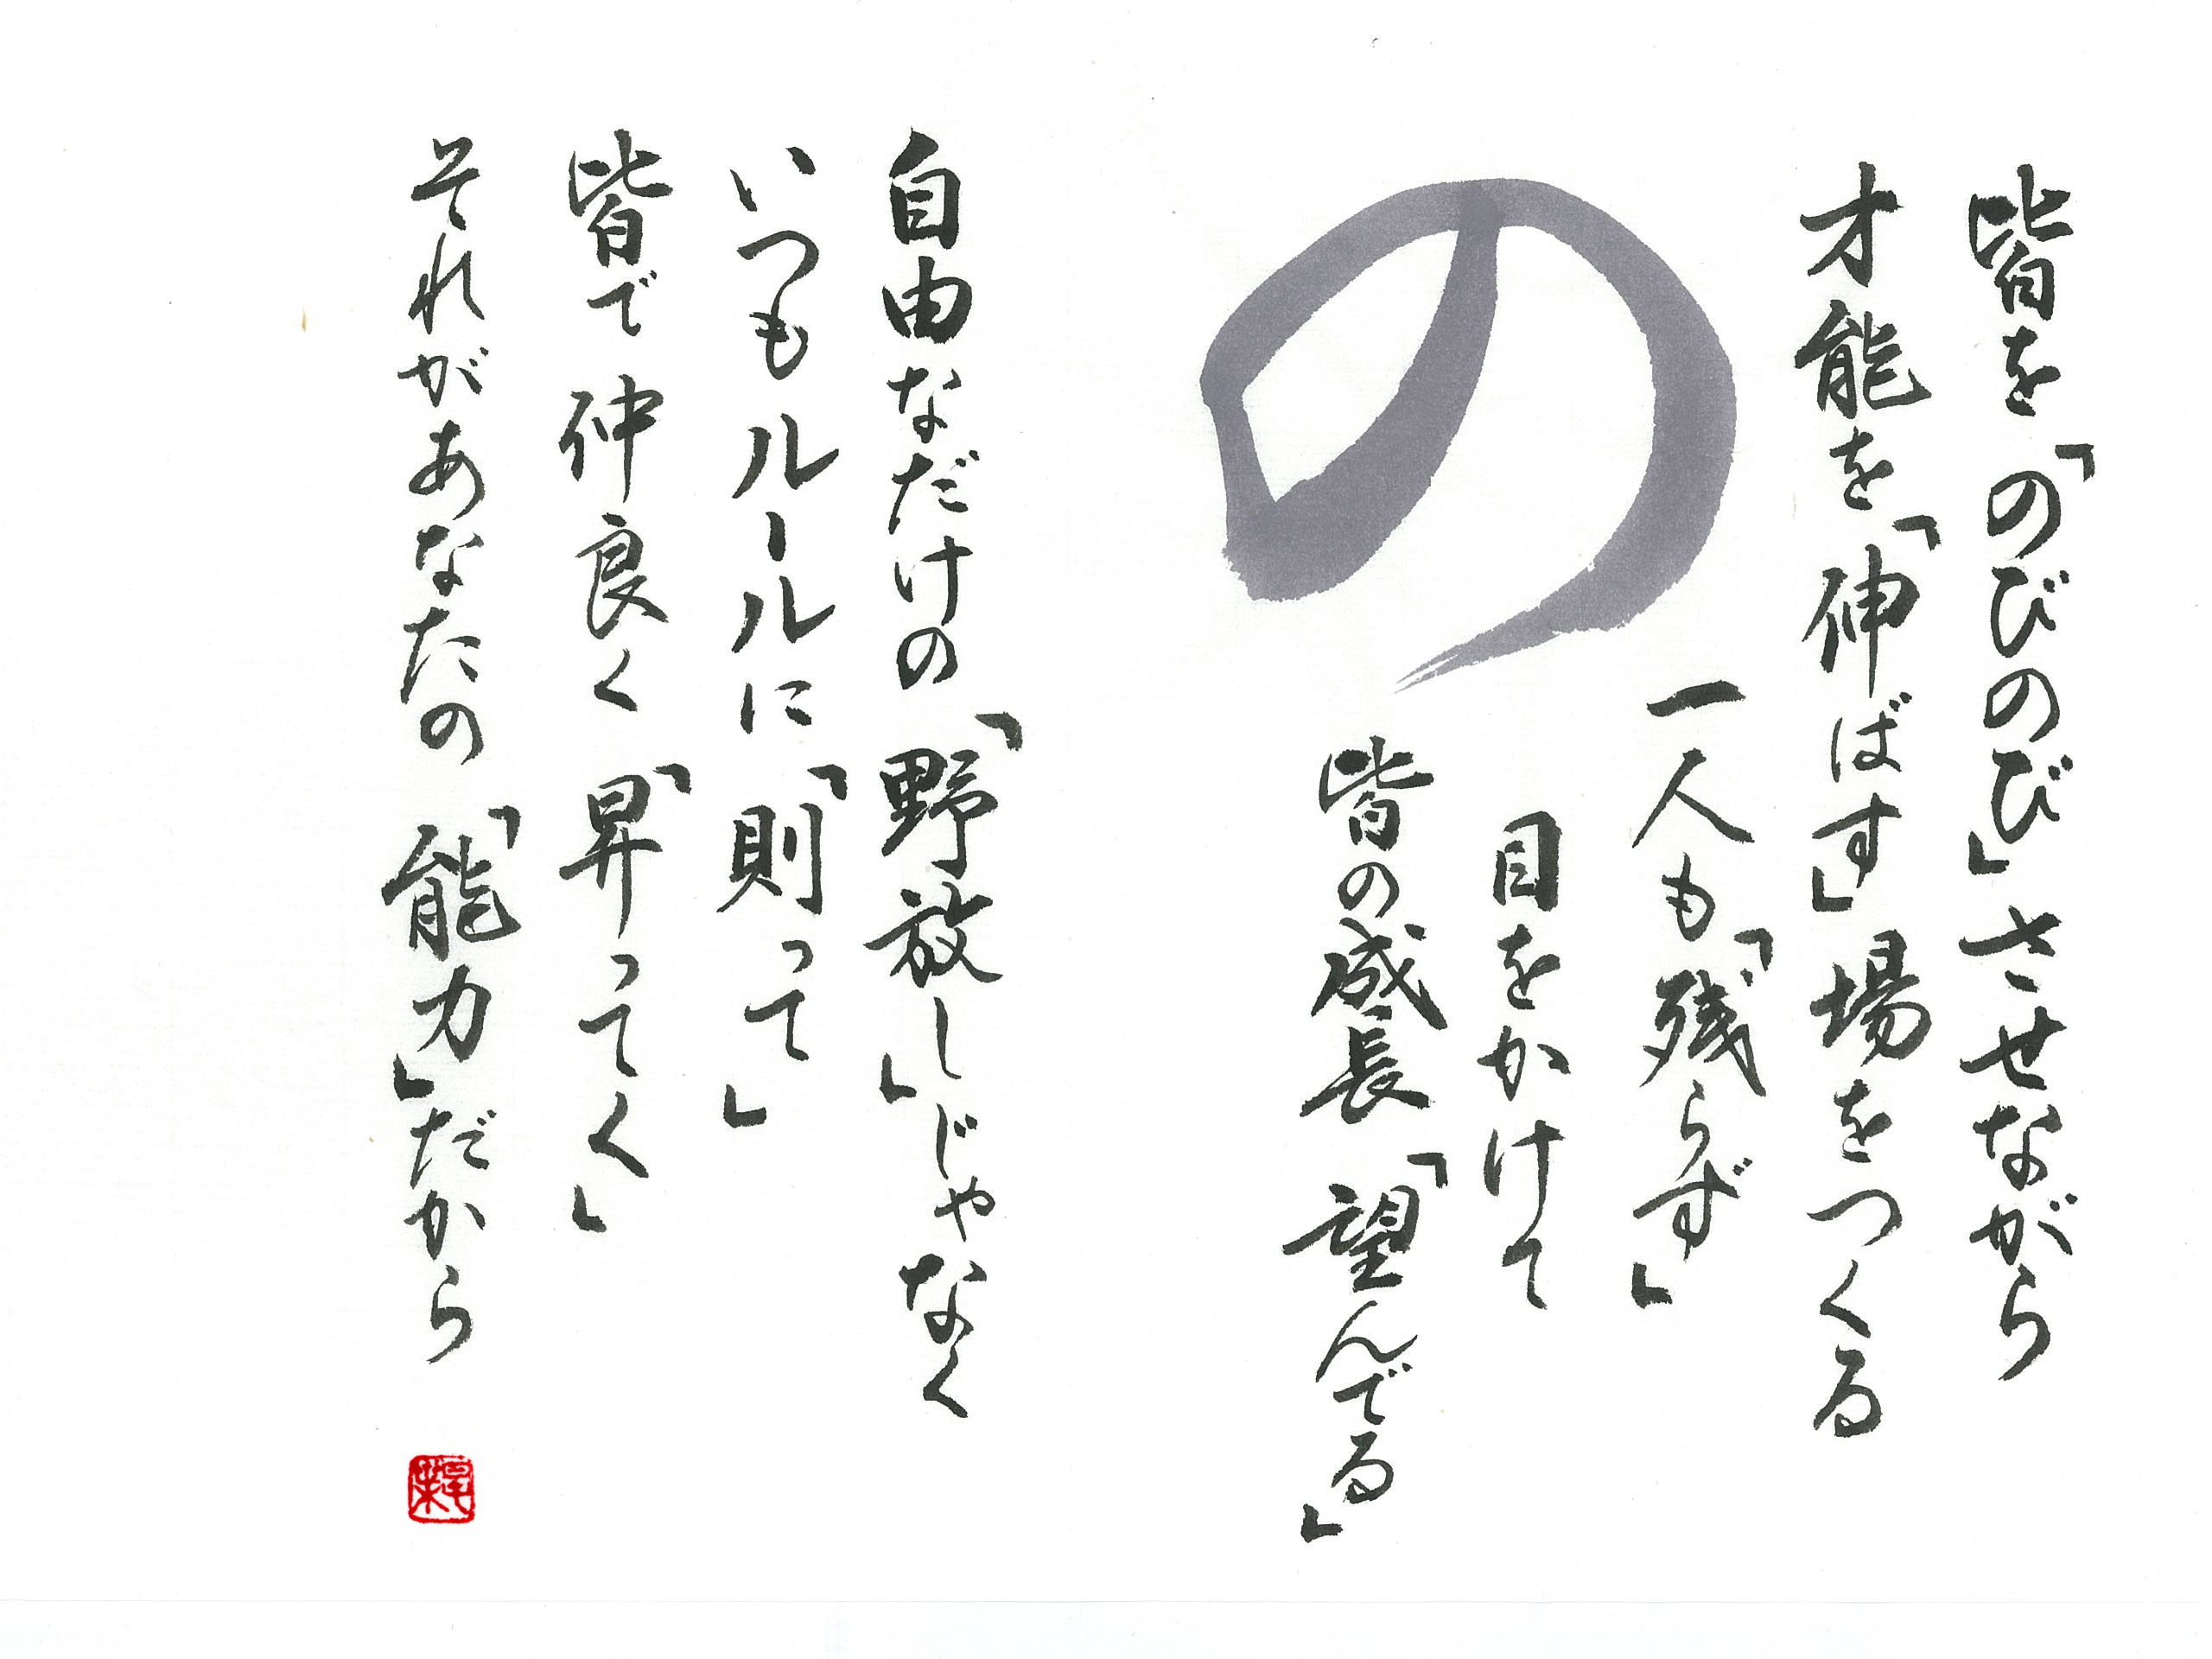 皆を「のびのび」させながら
才能を「伸ばす」場をつくる
の
一人も「残らず」
目をかけて
皆の成長「望んでる」
自由なだけの「野放し」じゃなく
いつもルールに「則って」
皆で仲良く「昇ってく」
それがあなたの「能力」だから